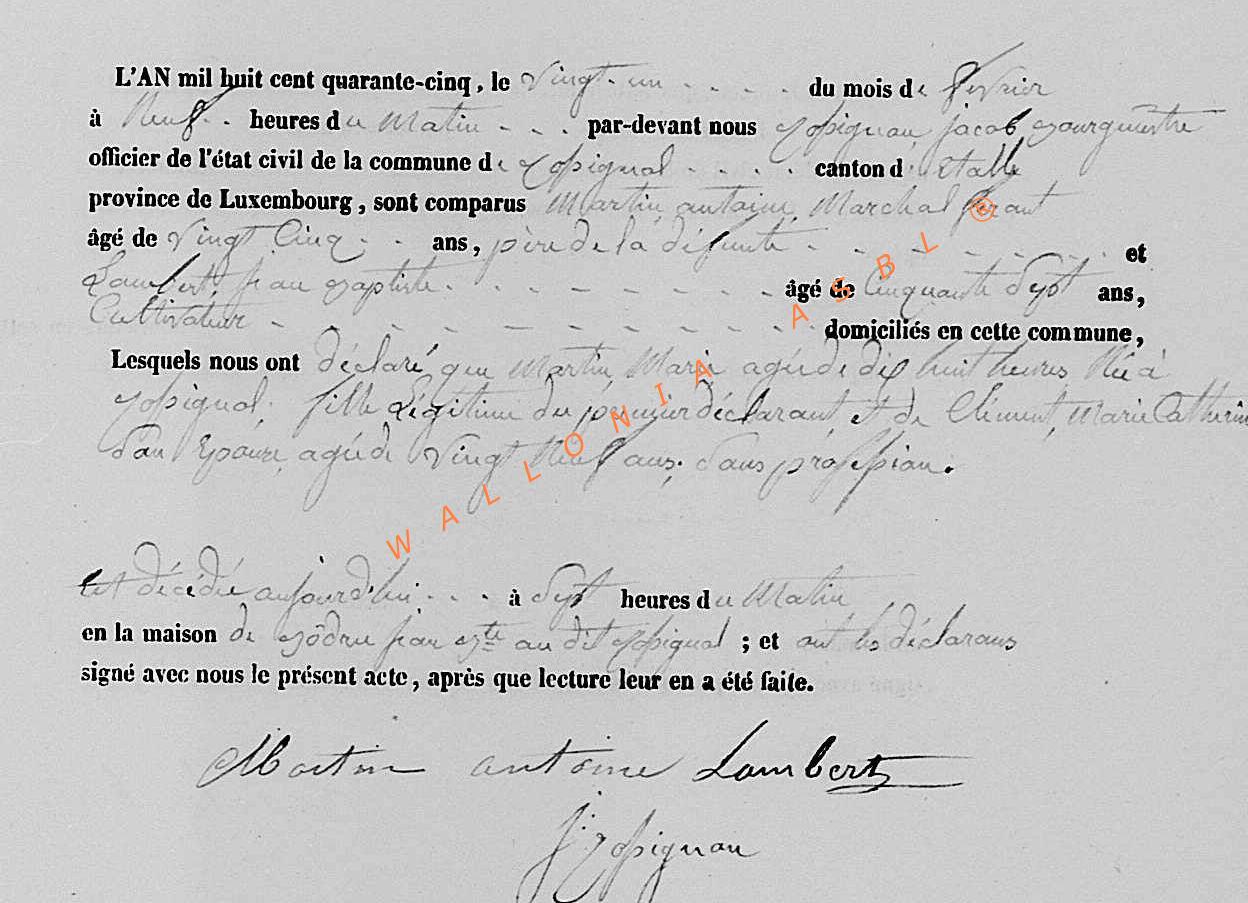 L'AN mil huit cent quarante-cinq, le Vingt-un . . . . du mois de fevrier
à Neuf . . heures du Matin - . . par-devant nous jacob Bourguestre
officier de l'état civil de la commune de . . . . canton d' Etalle
province de Luxembourg, sont comparus Martin, antoine, Marchal ferant
âgé de Vingt Cinq . . ans, père de la défunte . . . . . . . et
Lambert, jean Baptiste . . - - - - - - âgé de Cinquante Sept ans,
Cultivateur - . - - - - - - - - - domiciliés en cette commune,
Lesquels nous ont déclaré, que Martin, Marie agée de dix huit heures, Née à
fille Légitime du premier déclarant, et de Clément, Marie Catherine
Son Epouse, agée de Vingt Neuf ans, Sans profession.
Est décédée aujourd'hui . - - à Sept heures du Matin
en la maison de jean Bte au dit ; et ont les déclarans
signé avec nous le présent acte, après que lecture leur en a été faite.
Martin antoine Lambert
WALLONIA ASBL ®